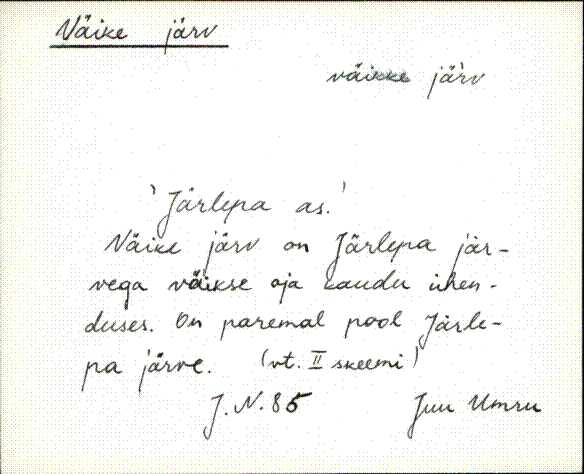 Väike järv
väikke jä̀rv
'Järlepa as.'
Väike järv on Järlepa jär-
vega väikse oja kaudu ühen-
duses. On paremal pool Järle-
pa järve. (vt. II skeemi)
J. N. 85 Juu Umru